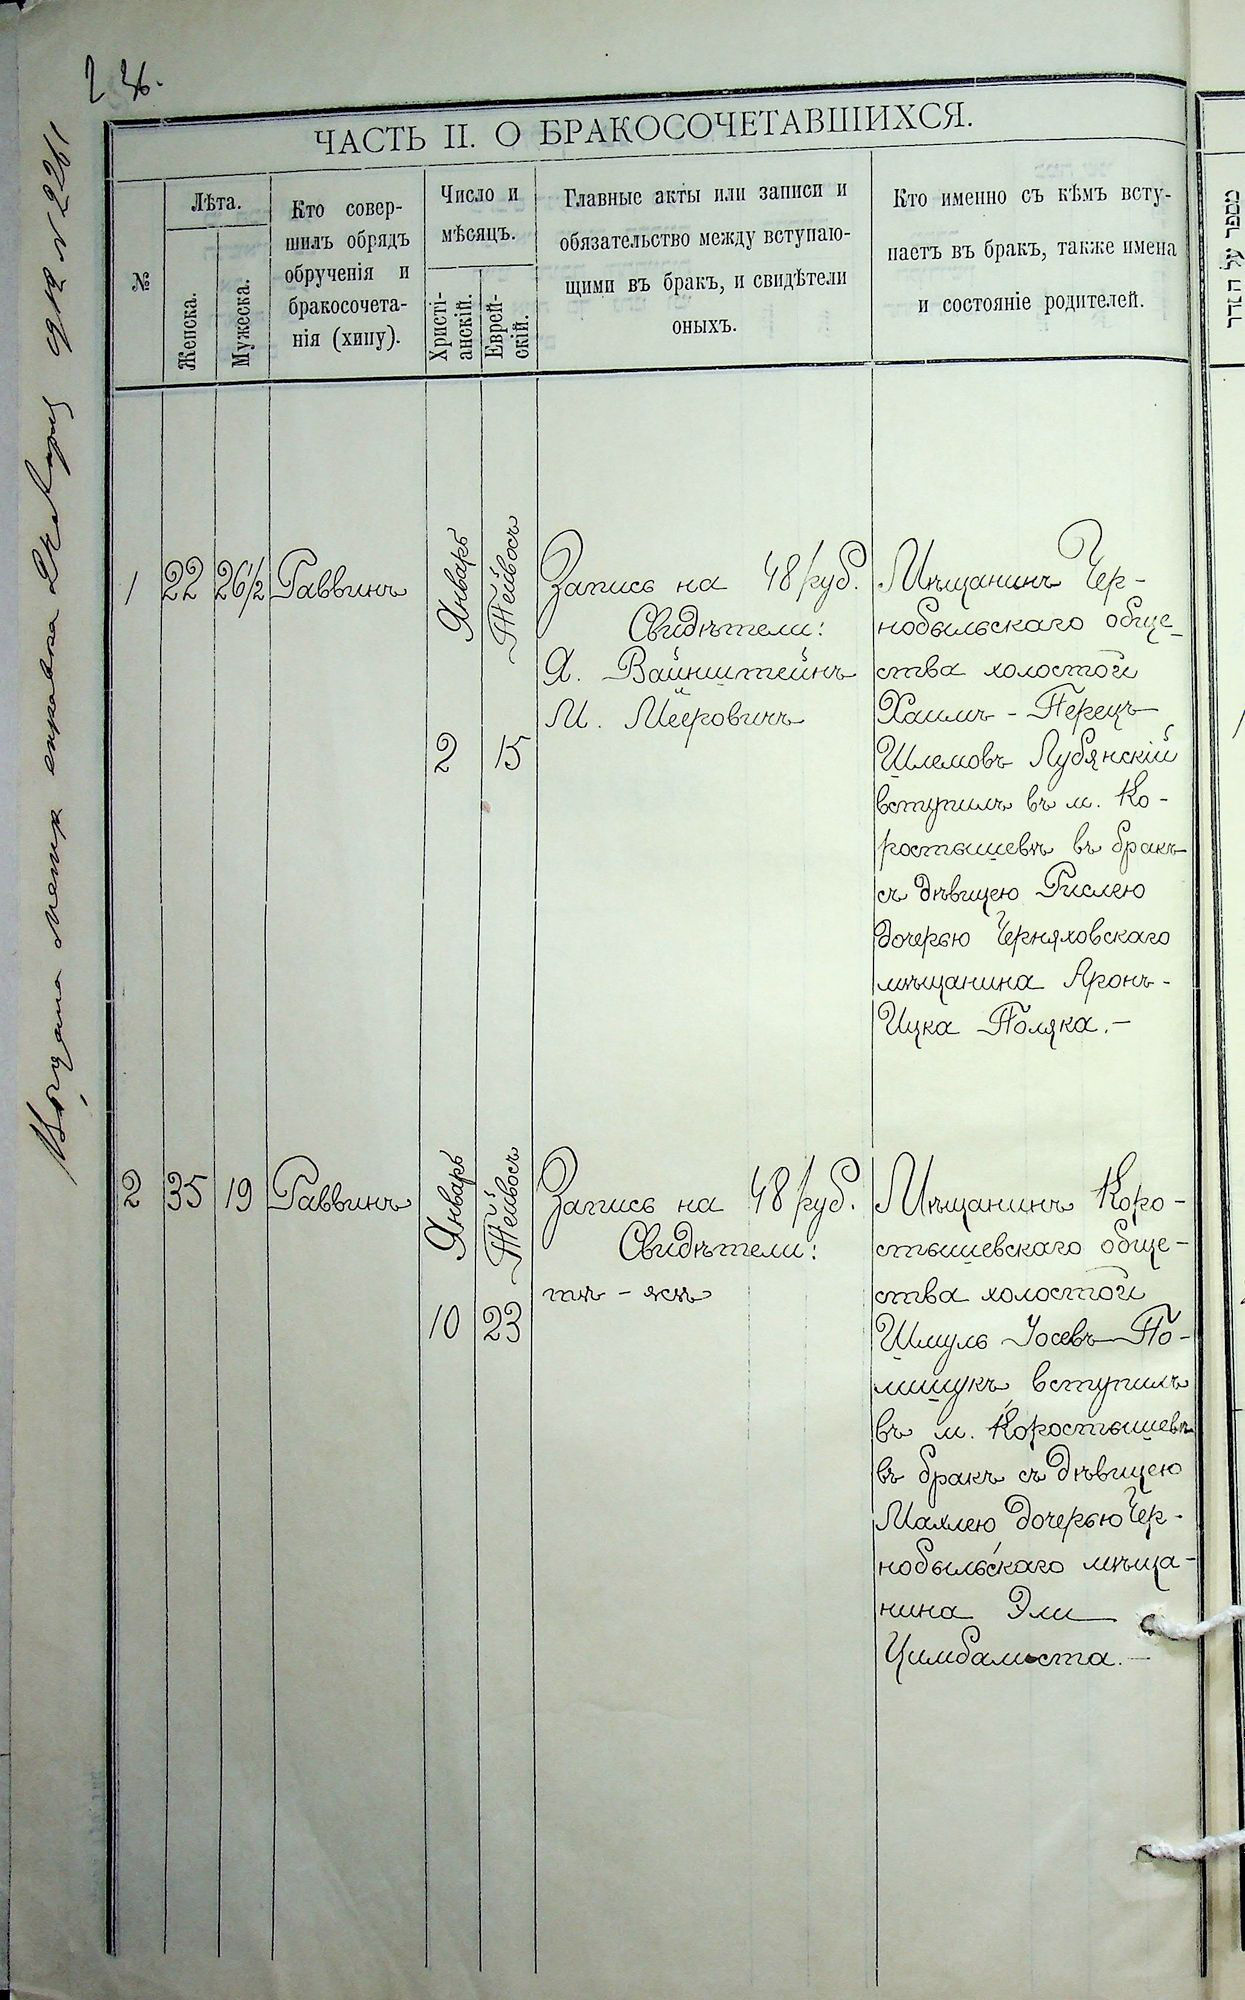 236.
ЧАСТЬ II. О БРАКОСОЧЕТАВШИХСЯ.
№
Лѣта.
Женска.
Мужеска.
Кто совер-
шилъ обрядъ
обрученія и
бракосочета-
нія (хипу).
Число и
мѣсяцъ.
Христі-
анскій.
Еврей-
скій.
Главные акты или записи и
обязательство между вступаю-
щими въ бракъ, и свидѣтели
оныхъ.
Кто именно съ кѣмъ всту-
паетъ въ бракъ, также имена
и состояніе родителей.
1
22
26 1/2
Раввинъ
Январь
2
Тейвосъ
15
Запись на 48 руб.
Свидѣтели:
Я. Вайнштейнъ
М. Мееровичъ
Мѣщанинъ Чер-
нобыльскаго обще-
ства холостой
Хаимъ-Перецъ
Шлемовъ Лубянскій
вступилъ въ м. Ко-
ростышевѣ въ бракъ
съ дѣвицею Рислею
дочерью Черняховскаго
мѣщанина Аронъ-
Ицка Поляка.-
2
35
19
Раввинъ
Январь
10
Тейвосъ
23
Запись на 48 руб.
Свидѣтели:
тѣ-ясѣ
Мѣщанинъ Коро-
стышевскаго обще-
ства холостой
Шмуль Іосевъ По-
лищукъ вступилъ
въ м. Коростышевѣ
въ бракъ съ дѣвицею
Махлею дочерью Чер-
нобыльскаго мѣща-
нина Эли
Цимбалиста.-
מספר על הסדר